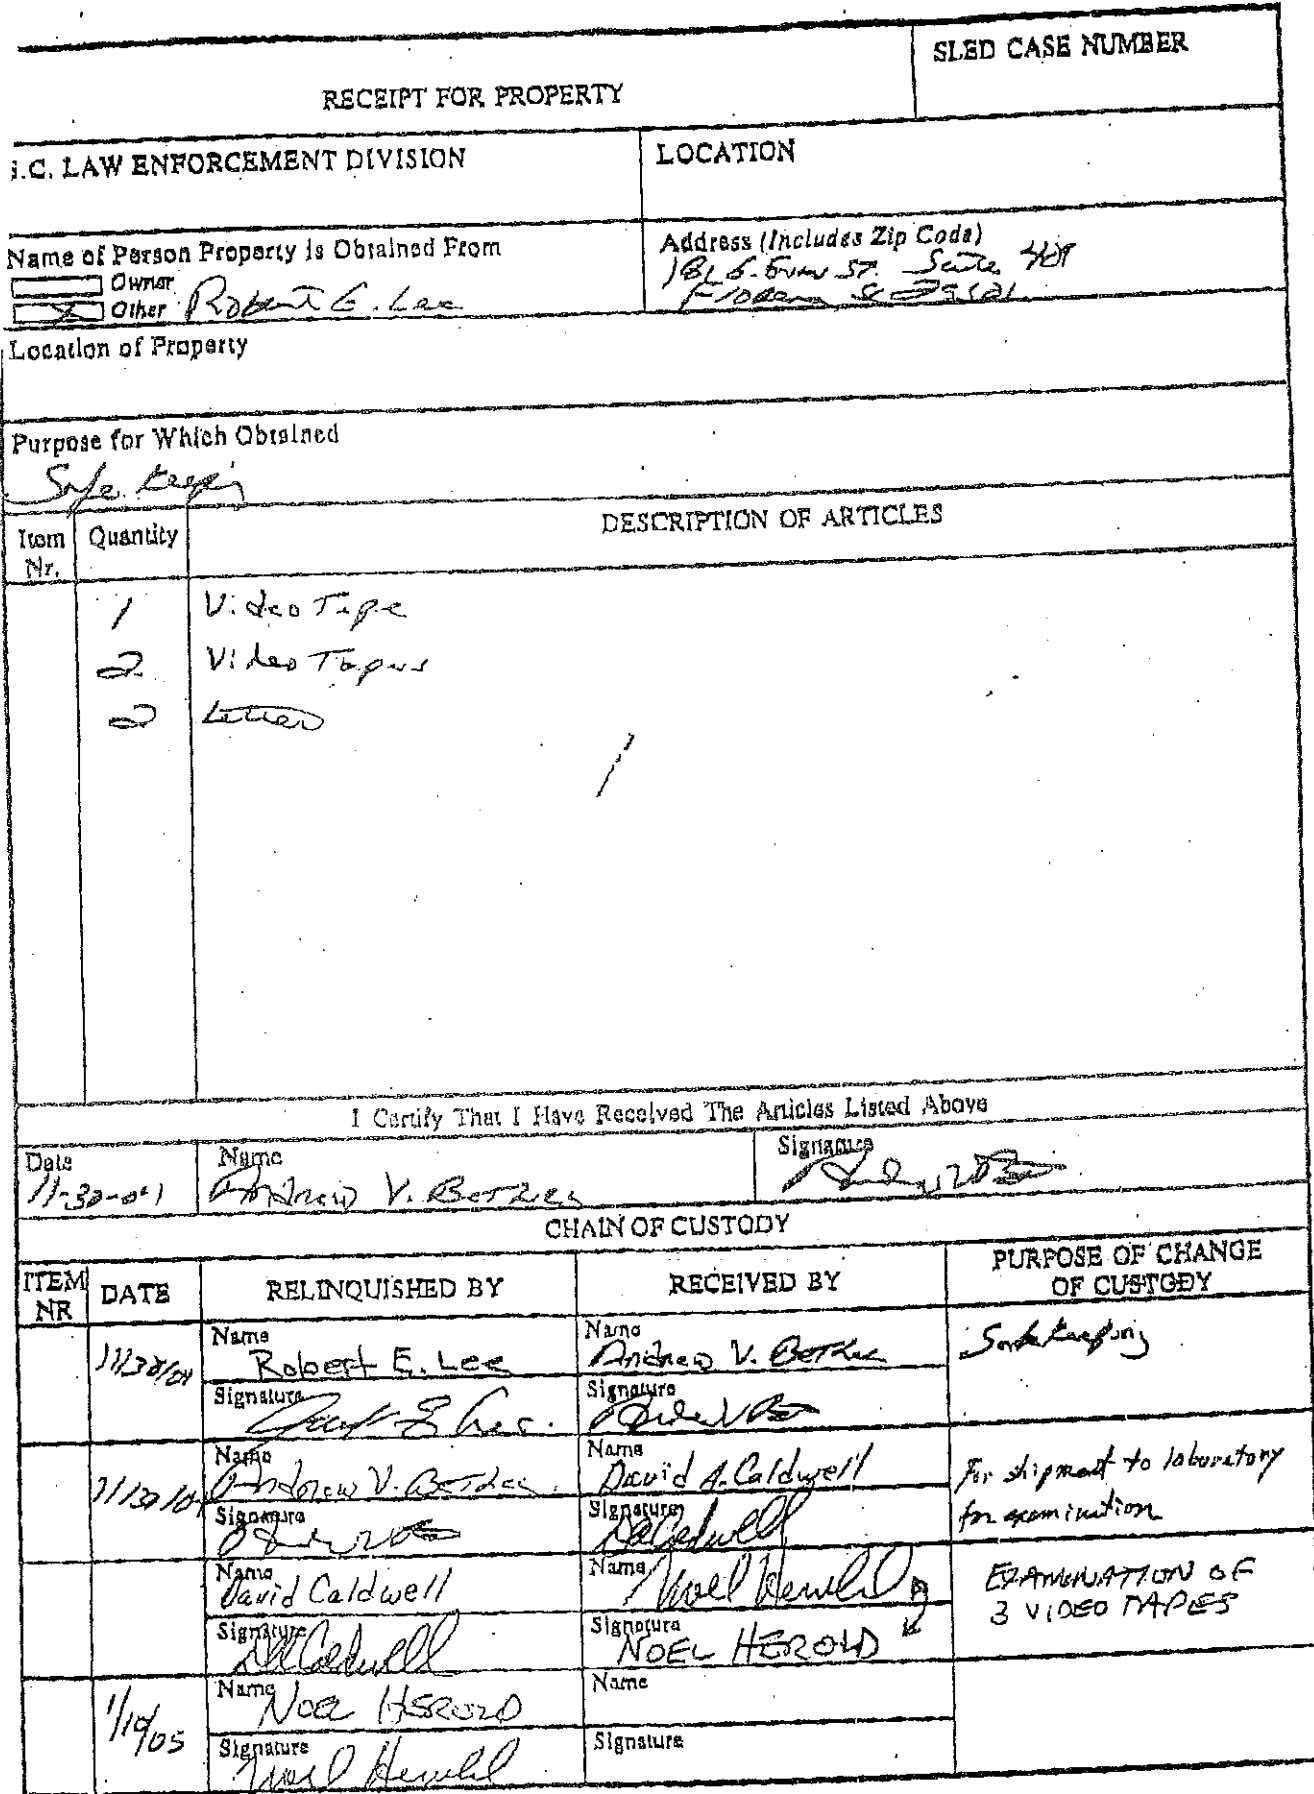 SLED CASE NUMBER
RECEIPT FOR PROPERTY
S.C. LAW ENFORCEMENT DIVISION
LOCATION
Name of Person Property is Obtained From
Owner
X Other Robert E. Lee
Address (Includes Zip Code)
181 E. Evans ST. Suite 409
Florence SC
Location of Property
Purpose for Which Obtained
Safe Keeping
Item Nr.
Quantity
DESCRIPTION OF ARTICLES
1 Video Tape
2 Video Tapes
2 Letter
I Certify That I Have Received The Articles Listed Above
Date
11-30-04
Name
Andrew V. Bethea
Signature
CHAIN OF CUSTODY
ITEM NR
DATE
RELINQUISHED BY
RECEIVED BY
PURPOSE OF CHANGE
OF CUSTODY
11/30/04
Name
Robert E. Lee
Signature
Name
Andrew V. Bethea
Signature
Safe Keeping
11/30/04
Name
Andrew V. Bethea
Signature
Name
David A. Caldwell
Signature
DACaldwell
For shipment to laboratory
for examination
Name
David Caldwell
Signature
DACaldwell
Name
Noel Herold
Signature
NOEL HEROLD
EXAMINATION OF
3 VIDEO TAPES
1/19/05
Name
NOEL HEROLD
Signature
Noel Herold
Name
Signature